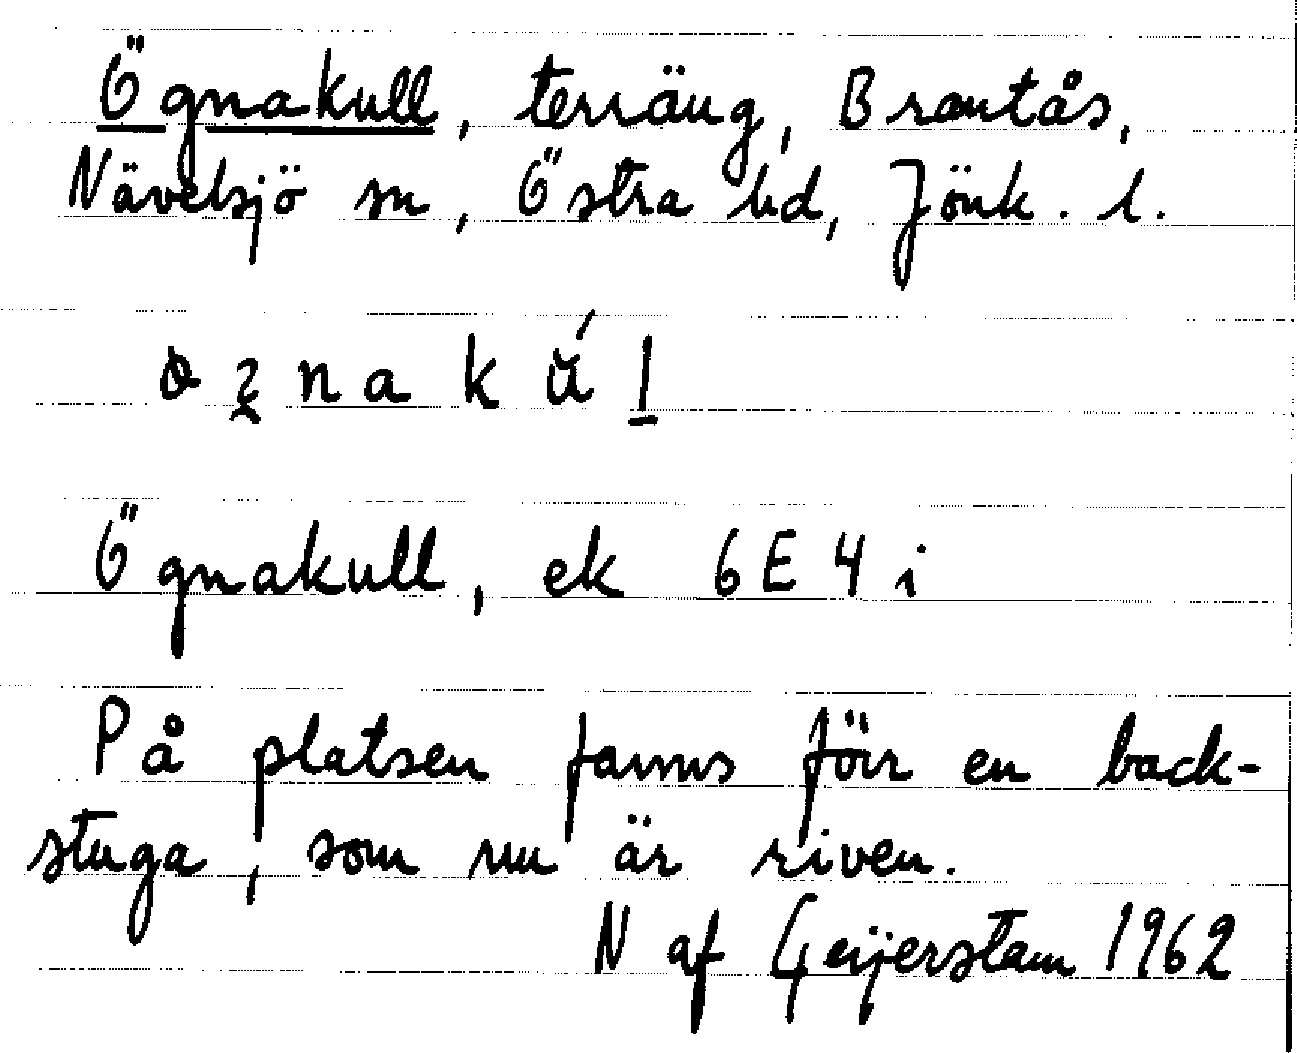 Ögnakull, terräng, Brantås,
Nävelsjö sn, Östra hd, Jönk. l.
Ögnakull, ek 6E4i
På platsen fanns förr en back-
stuga, som nu är riven.
N af Geijerstam 1962